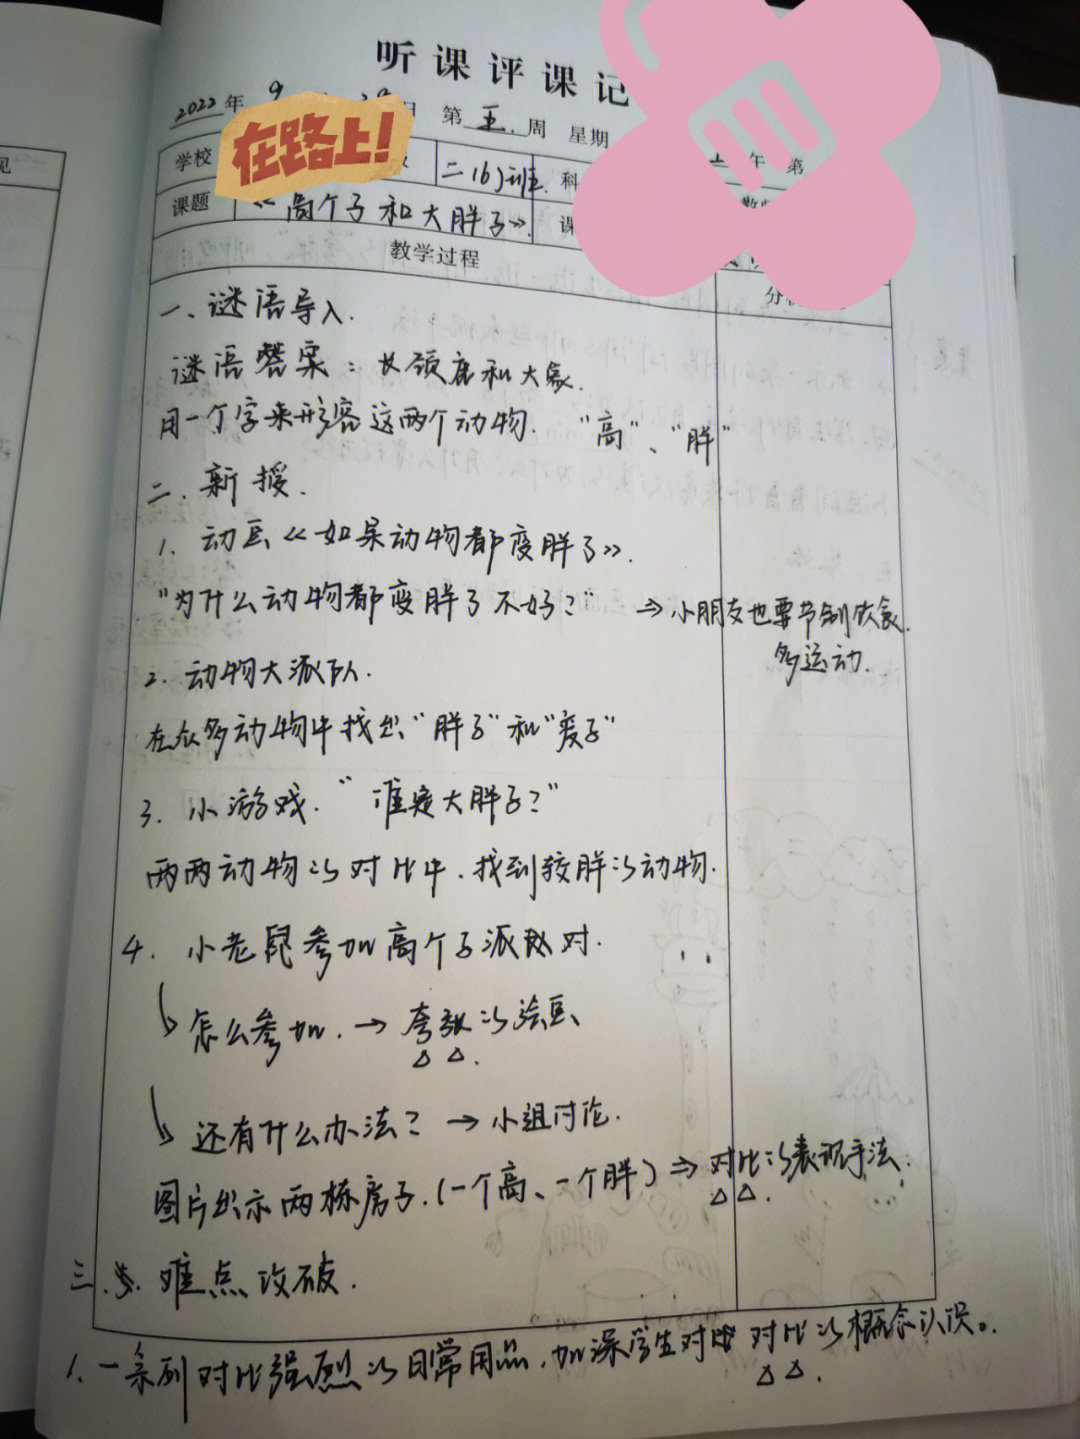 听课评课记
2022年 9 日 第 五 周 星期
在路上!
学校 二(6)班 科 年 第
课题 《高个子和大胖子》 课
教学过程 分
一、谜语导入.
谜语答案：长颈鹿和大象.
用一个字来形容这两个动物. "高"、"胖"
二、新授.
1、动画《如果动物都变胖了》.
"为什么动物都变胖了不好？" ⇒小朋友也要节制饮食.
多运动.
2、动物大派队.
在众多动物中找出"胖子"和"瘦子"
3、小游戏."谁是大胖子？"
两两动物的对比中.找到较胖的动物.
4、小老鼠参加高个子派对.
怎么参加.→夸张的绘画
还有什么办法？→小组讨论.
图片出示两栋房子.(一个高、一个胖)⇒对比的表现手法.
三、难点攻破.
1、一系列对比强烈的日常用品.加深学生对 对比的概念认识。